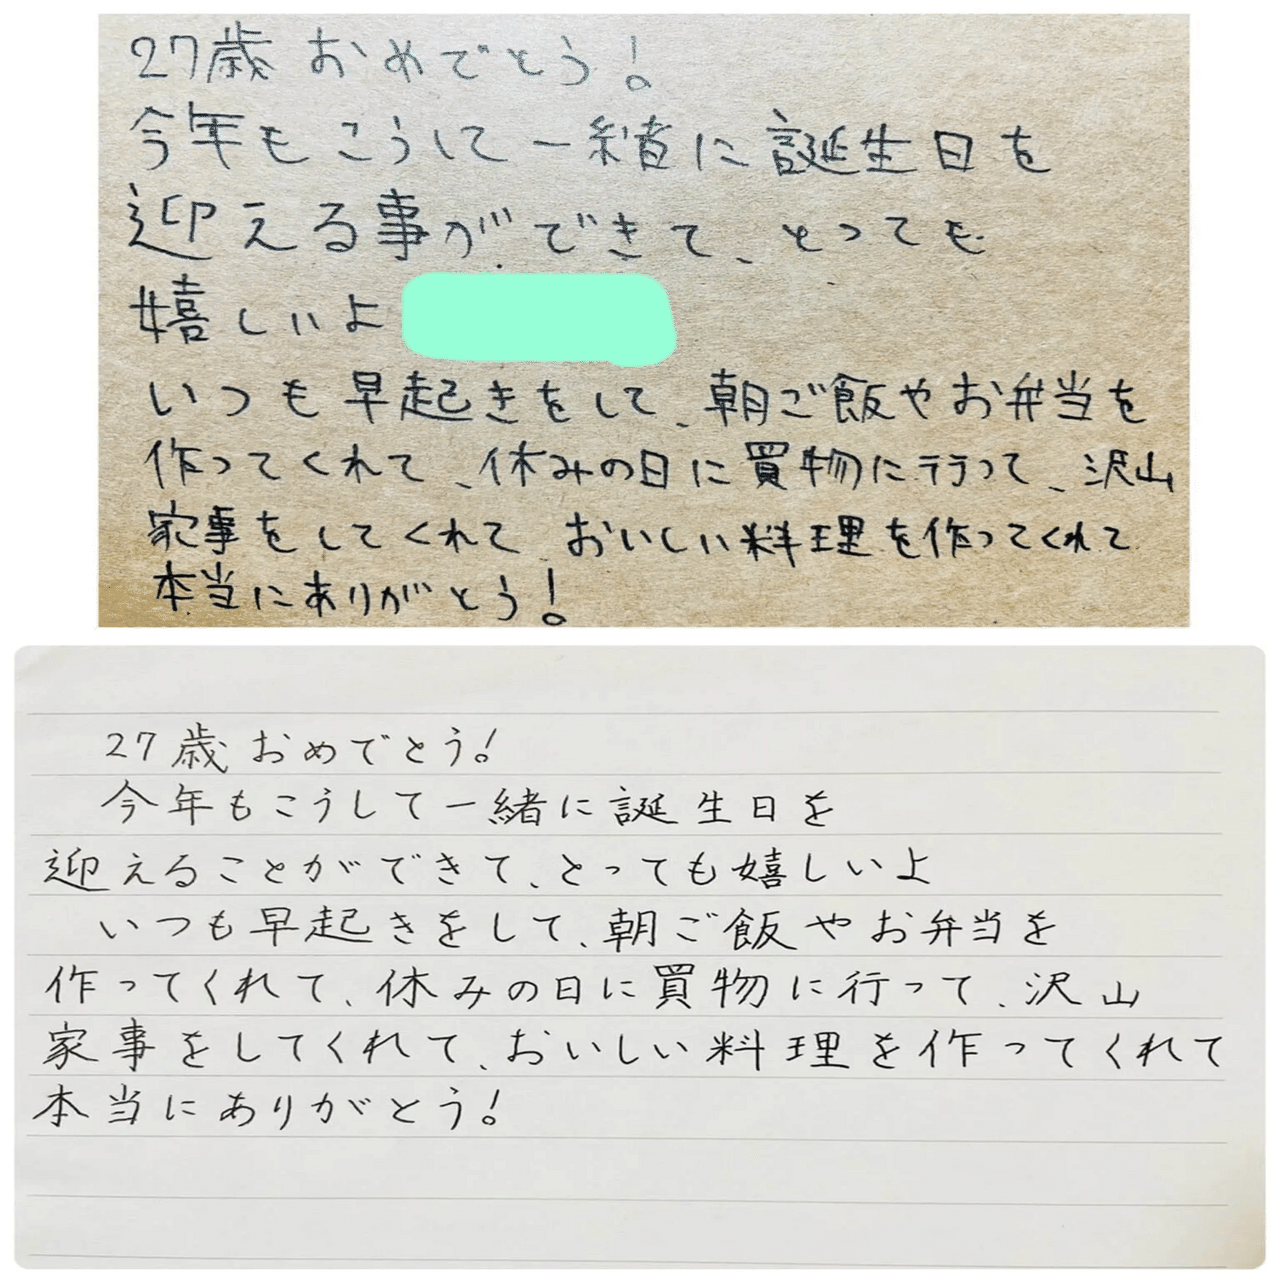 27歳おめでとう!
今年もこうして一緒に誕生日を
迎える事ができて、とっても
嬉しいよ
いつも早起きをして、朝ご飯やお弁当を
作ってくれて、休みの日に買物に行って、沢山
家事をしてくれて、おいしい料理を作ってくれて
本当にありがとう!
27歳おめでとう!
今年もこうして一緒に誕生日を
迎えることができて、とっても嬉しいよ
いつも早起きをして、朝ご飯やお弁当を
作ってくれて、休みの日に買物に行って、沢山
家事をしてくれて、おいしい料理を作ってくれて
本当にありがとう!